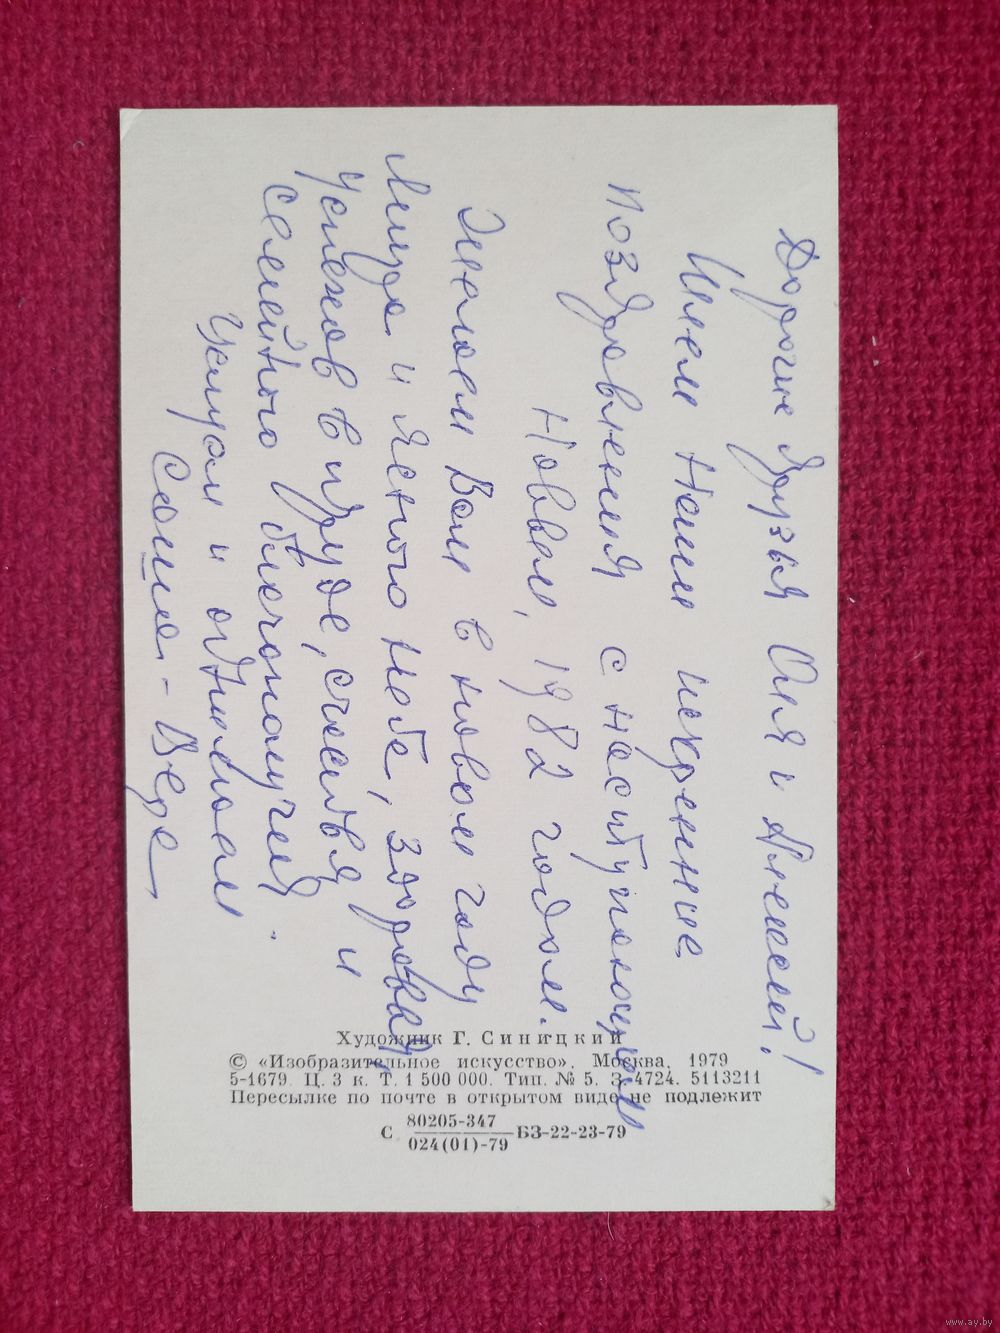 Дорогие друзья Оля и Алексей!
Шлем Наши искренние
поздравления с наступающим
Новым, 1982 годом.
Желаем Вам в новом году
Мира и ясного неба, здоровья,
Успехов в труде, счастья и
семейного благополучия.
Целуем и обнимаем
Саша - Вера
Художник Г. Синицкий
© «Изобразительное искусство». Москва. 1979
5-1679. Ц. 3 к. Т. 1 500 000. Тип. № 5. З. 4724. 5113211
Пересылке по почте в открытом виде не подлежит
С 80205-347 / 024(01)-79 БЗ-22-23-79
www.ay.by